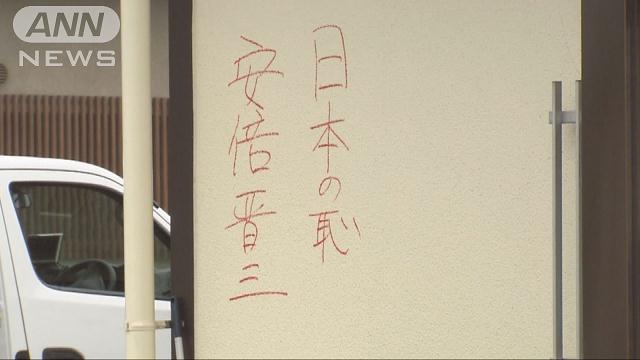 ANN
NEWS
日本の恥
安倍晋三